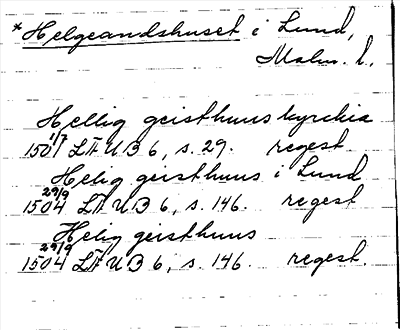 * Helgeandshuset i Lund,
Malm. l.
Hellig geisthuus kyrckia
1501 1/7 LÄUB 6, s. 29. regest
Helig geisthuus i Lund
1504 29/9 LÄUB 6, s. 146. regest
Helig geisthuus
1504 29/9 LÄUB 6, s. 146. regest.